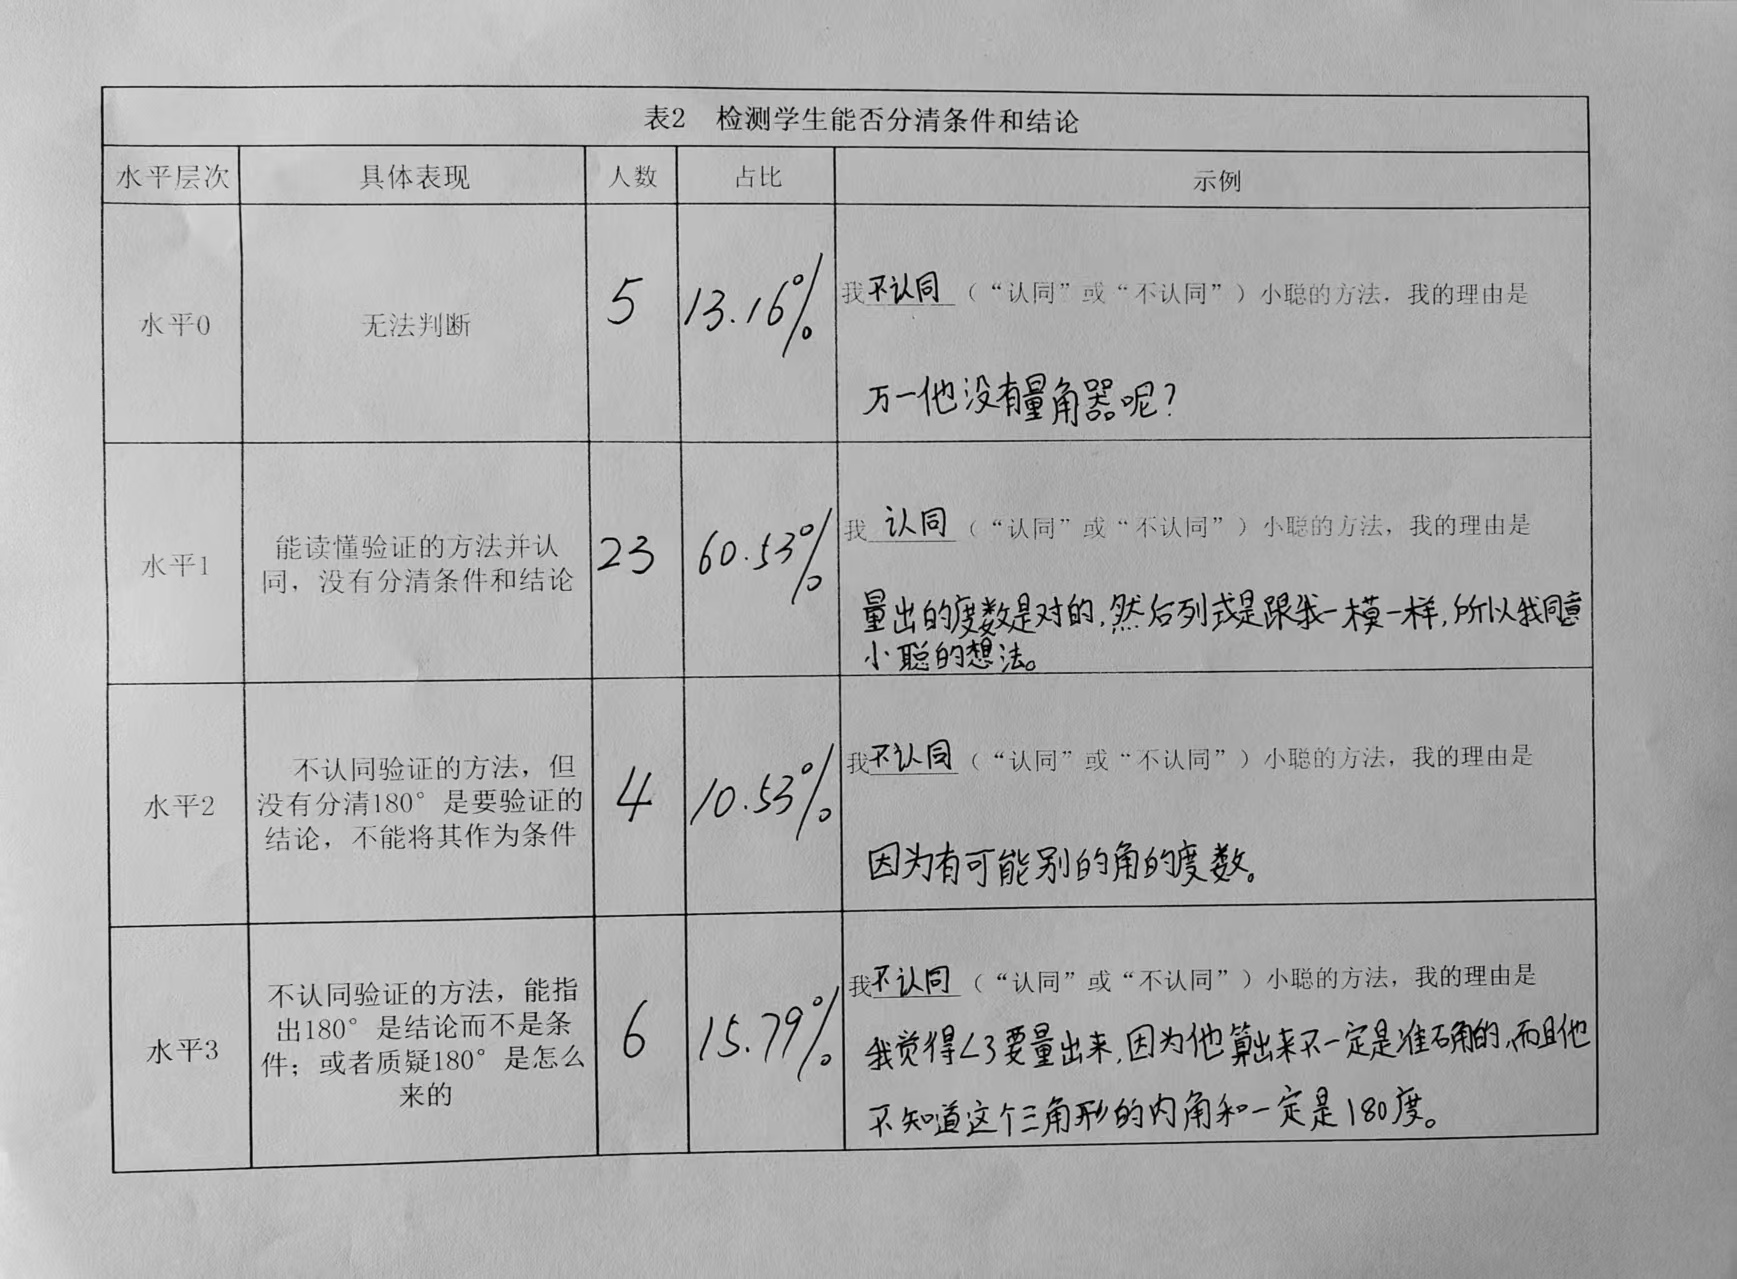 表2 检测学生能否分清条件和结论
水平层次 具体表现 人数 占比 示例
水平0 无法判断 5 13.16%
我不认同（“认同”或“不认同”）小聪的方法，我的理由是
万一他没有量角器呢？
水平1
能读懂验证的方法并认
同，没有分清条件和结论
23 60.53%
我 认同（“认同”或“不认同”）小聪的方法，我的理由是
量出的度数是对的，然后列式是跟我一模一样，所以我同意
小聪的想法。
水平2
不认同验证的方法，但
没有分清180°是要验证的
结论，不能将其作为条件
4 10.53%
我不认同（“认同”或“不认同”）小聪的方法，我的理由是
因为有可能别的角的度数。
水平3
不认同验证的方法，能指
出180°是结论而不是条
件；或者质疑180°是怎么
来的
6 15.79%
我不认同（“认同”或“不认同”）小聪的方法，我的理由是
我觉得∠3要量出来，因为他算出来不一定是准确的，而且他
不知道这个三角形的内角和一定是180度。